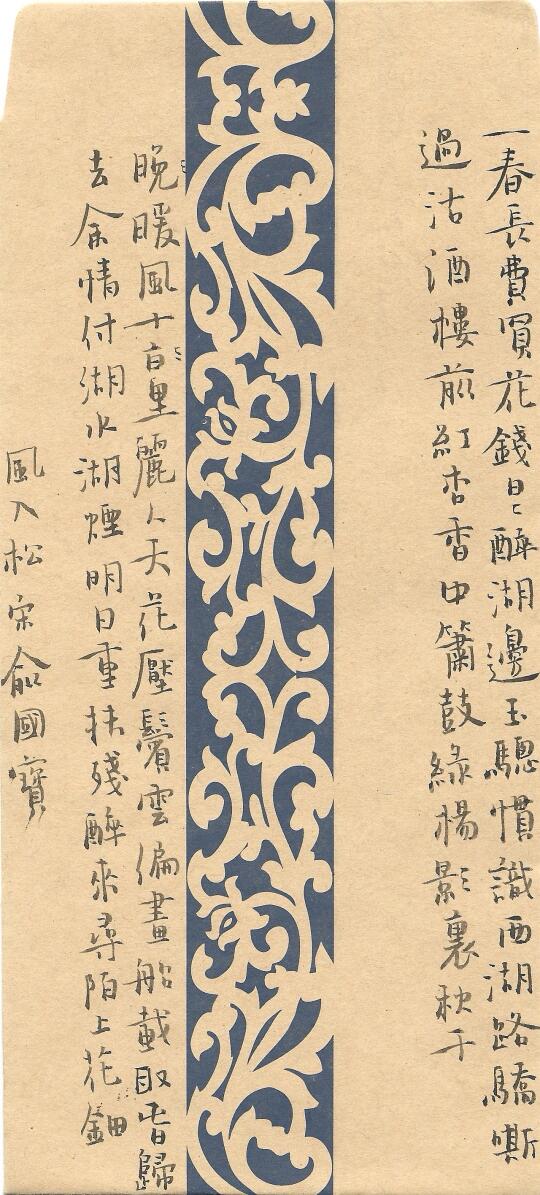 一春長費買花錢日〻醉湖邊玉驄慣識西湖路驕嘶
過沽酒樓前紅杏香中簫鼓綠楊影裏秋千
晚暖風十里麗人天花壓鬢雲偏畫船載取春歸
去余情付湖水湖煙明日重扶殘醉來尋陌上花鈿
風入松宋俞國寶